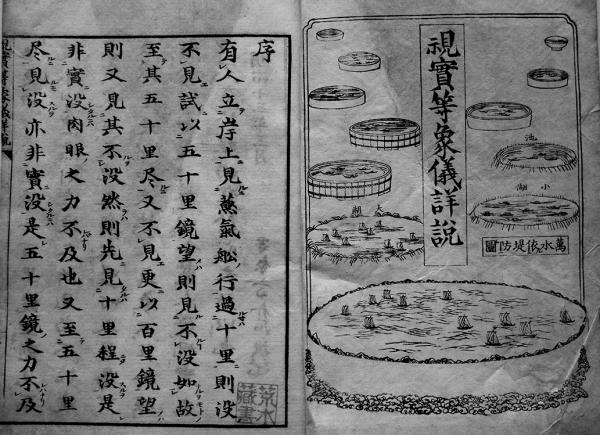 視實等象儀詳說
池
小湖
大湖
萬水依堤防圖
序
有人立岸上見蒸氣舩行過十里則没
不見試以五十里鏡望則見不没如故
至其五十里尽又不見更以百里鏡望
則又見其不没然則先見十里程没是
非實没肉眼之力不及也又至五十里
尽見没亦非實没是五十里鏡之力不及
荒木
藏書
視實等象儀詳說